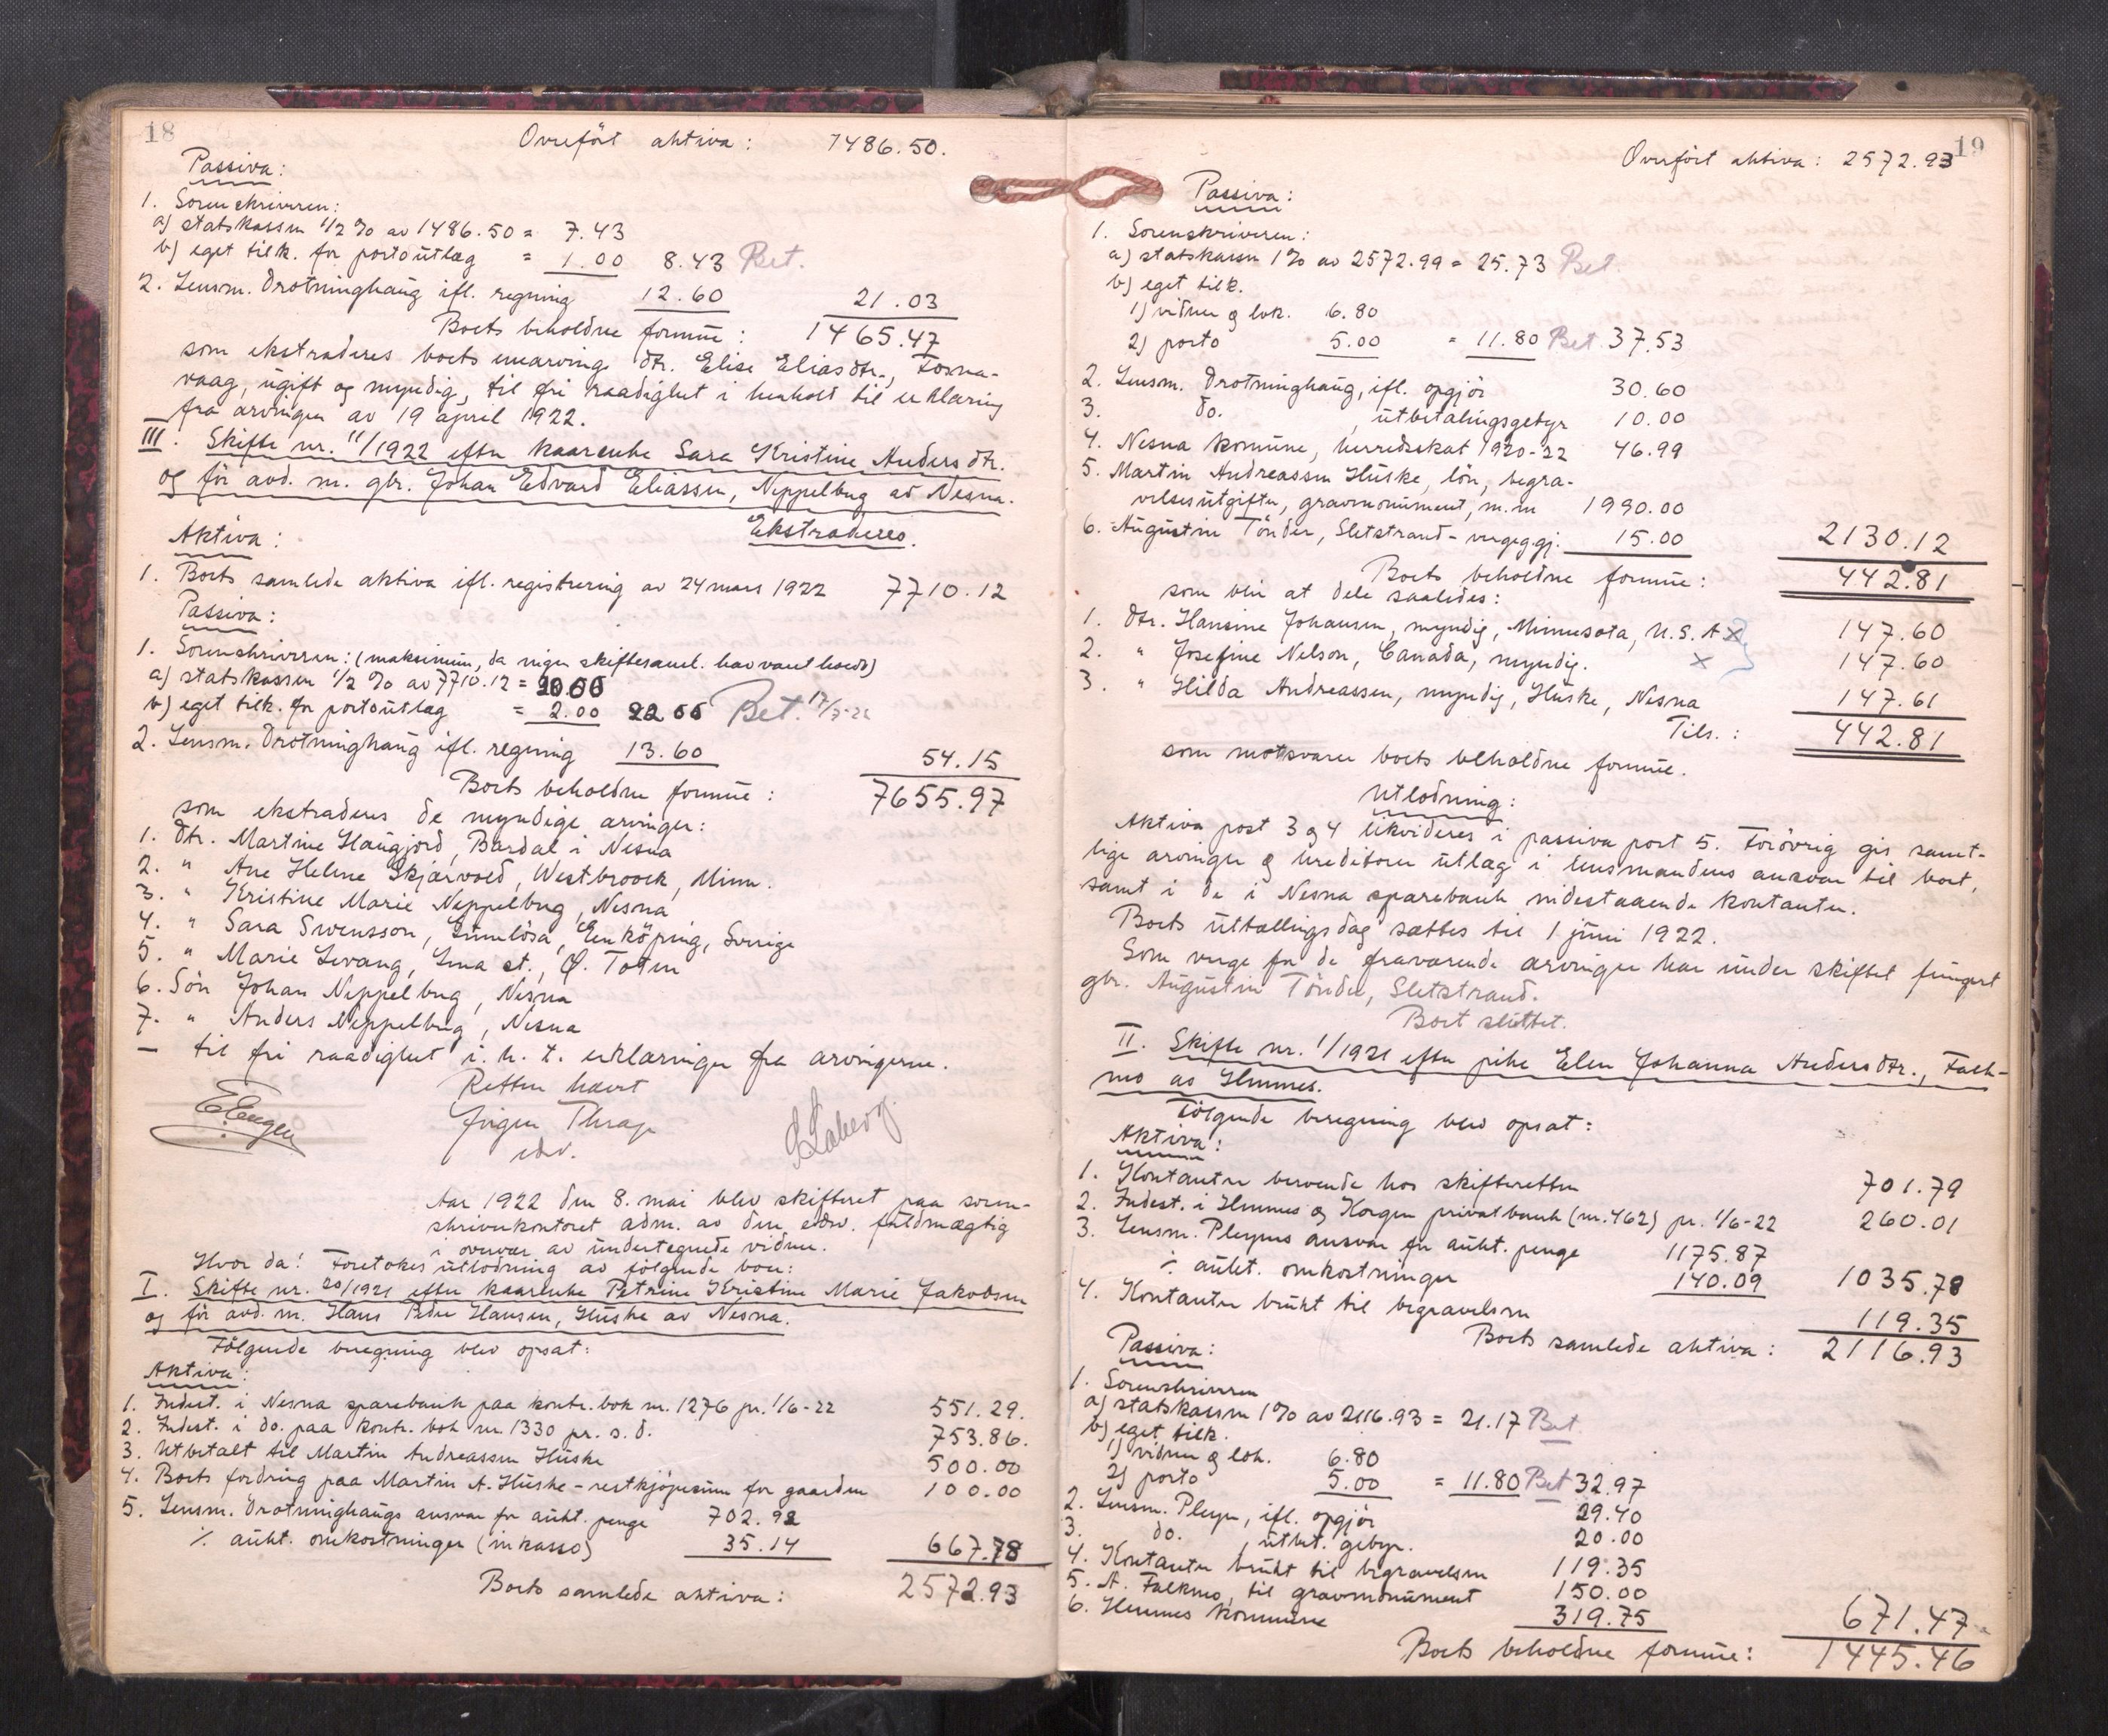 18
Overført aktiva: 1486.50.
Passiva:
1. Sorenskriveren:
a) statskassen 1/2 % av 1486.50 = 7.43
b) eget tilk. for portoutlæg = 1.00 8.43 Bet.
2. Lensm. Drotninghaug ifl. regning 12.60 21.03
Boets beholdne formue: 1465.47
som ekstraderes boets enearving dtr. Elise Eliasdtr., Tosna-
vaag, ugift og myndig, til fri raadighet i henhold til erklæring
fra arvingen av 19 april 1922.
III. Skifte nr. 11/1922 efter kaarenke Sara Kristine Andersdtr.
og før avd. m. gbr. Johan Edvard Eliassen, Neppelberg av Nesna.
Ekstraderes.
Aktiva:
1. Boets samlede aktiva ifl. registrering av 24 mars 1922 7710.12
Passiva:
1. Sorenskriveren: (maksimum, da ingen skiftesaml. har vært holdt)
a) statskassen 1/2 % av 7710.12 =
b) eget tilk. for portoutlæg = 2.00 Bet. 17/7-22
2. Lensm. Drotninghaug ifl. regning 13.60 54.15
Boets beholdne formue: 7655.97
som ekstraderes de myndige arvinger:
1. dtr. Martine Haugjord, Bardal i Nesna
2. " Ane Helene Skjærvold, Westbroock, Minn.
3. " Kristine Marie Neppelberg, Nesna
4. " Sara Swensson, Enköping, Sverige
5. " Marie Levang, Lena st., Ø. Toten
6. Søn Johan Neppelberg, Nesna
7. " Anders Neppelberg, Nesna
— til fri raadighet i. h. t. erklæringer fra arvingerne.
Retten hævet
Jørgen Thrap
edv.
Aar 1922 den 8. mai blev skifteret paa soren-
skriverkontoret adm. av den edsv. fuldmægtig
i overvær av undertegnede vidner.
Hvor da! Foretokes utlodning av følgende boer:
I. Skifte nr. 20/1921 efter kaarenke Petrine Kristine Marie Jakobsen
og før avd. m. Hans Peder Hansen, Huske av Nesna.
Følgende beregning blev opsat:
Aktiva:
1. Indest. i Nesna sparebank paa kontr. bok nr. 1276 pr. 1/6-22 551.29.
2. Indest. i do. paa kontr. bok nr. 1330 pr. s. d. 753.86.
3. Utbetalt til Martin Andreassen Huske 500.00
4. Boets fordring paa Martin A. Huske - restkjøpesum for gaarden 100.00
5. Lensm. Drotninghaugs ansvar for aukt. penge 702.92
÷ aukt. omkostninger (inkasso) 35.14 667.78
Boets samlede aktiva: 2572.93
19
Overført aktiva: 2572.93
Passiva:
1. Sorenskriveren:
a) statskassen 1% av 2572.99 = 25.73 Bet.
b) eget tilk.
1) vidner og lok. 6.80
2) porto 5.00 = 11.80 Bet. 37.53
2. Lensm. Drotninghaug, ifl. opgjør 30.60
3. do. , utbetalingsgebyr 10.00
4. Nesna komune, herredsskat 1920-22 46.99
5. Martin Andreassen Huske, løn, begra-
velsesutgifter, gravmonument, m. m 1990.00
6. Augustin Tønder, Sletstrand - vergegj. 15.00 2130.12
Boets beholdne formue: 442.81
som blir at dele saaledes:
1. dtr. Hansine Johansen, myndig, Minnesota, U. S. A X 147.60
2. " Josefine Nelson, Canada, myndig. X 147.60
3. " Hilda Andreassen, myndig, Huske, Nesna 147.61
Tils.: 442.81
som motsvarer boets beholdne formue.
Utlodning:
Aktiva post 3 og 4 likvideres i passiva post 5. Forøvrig gis samt-
lige arvinger og kreditorer utlæg i lensmandens ansvar til boet,
samt i de i Nesna sparebank indestaaende kontanter.
Boets utbetalingsdag sættes til 1 juni 1922.
Som verge for de fraværende arvinger har under skiftet fungert
gbr. Augustin Tønder, Sletstrand.
Boet sluttet.
II. Skifte nr. 1/1921 efter pike Elen Johanna Andersdtr., Falk-
mo av Hemnes.
Følgende beregning blev opsat:
Aktiva:
1. Kontanter beroende hos skifteretten 701.79
2. Indest. i Hemnes og Korgen privatbank (nr. 462) pr. 1/6-22 260.01
3. Lensm. Pleyms ansvar for aukt. penge 1175.87
÷ aukt. omkostninger 140.09 1035.78
4. Kontanter brukt til begravelsen 119.35
Boets samlede aktiva: 2116.93
Passiva:
1. Sorenskriveren
a) statskassen 1% av 2116.93 = 21.17 Bet
b) eget tilk.
1) vidner og lok. 6.80
2) porto 5.00 = 11.80 Bet 32.97
2. Lensm. Pleym, ifl. opgjør 29.40
3. do. , utbet. gebyr. 20.00
4. Kontanter brukt til begravelsen 119.35
5. A. Falkmo, til gravmonument 150.00
6. Hemnes kommune 319.75 671.47
Boets beholdne formue: 1445.46